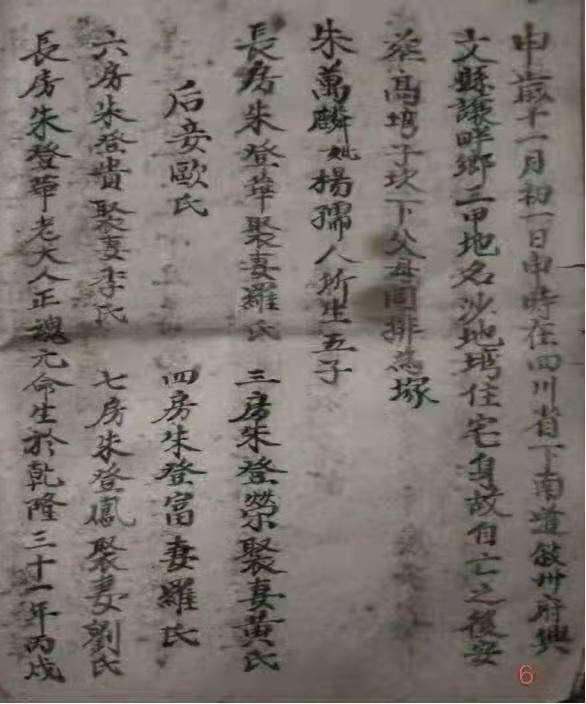 申歲十一月初一日申時在四川省下南道敘州府興
文縣讓畔鄉三甲地名沙地塆住宅身故自亡之後安
葬高塆子坎下父母同排為塚
朱萬麟妣楊孺人所生五子
長房朱登華聚妻羅氏 三房朱登榮聚妻黃氏
后妾歐氏 四房朱登富妻羅氏
六房朱登貴聚妻李氏 七房朱登鳳聚妻劉氏
長房朱登華老大人正魂元命生於乾隆三十一年丙戌
6